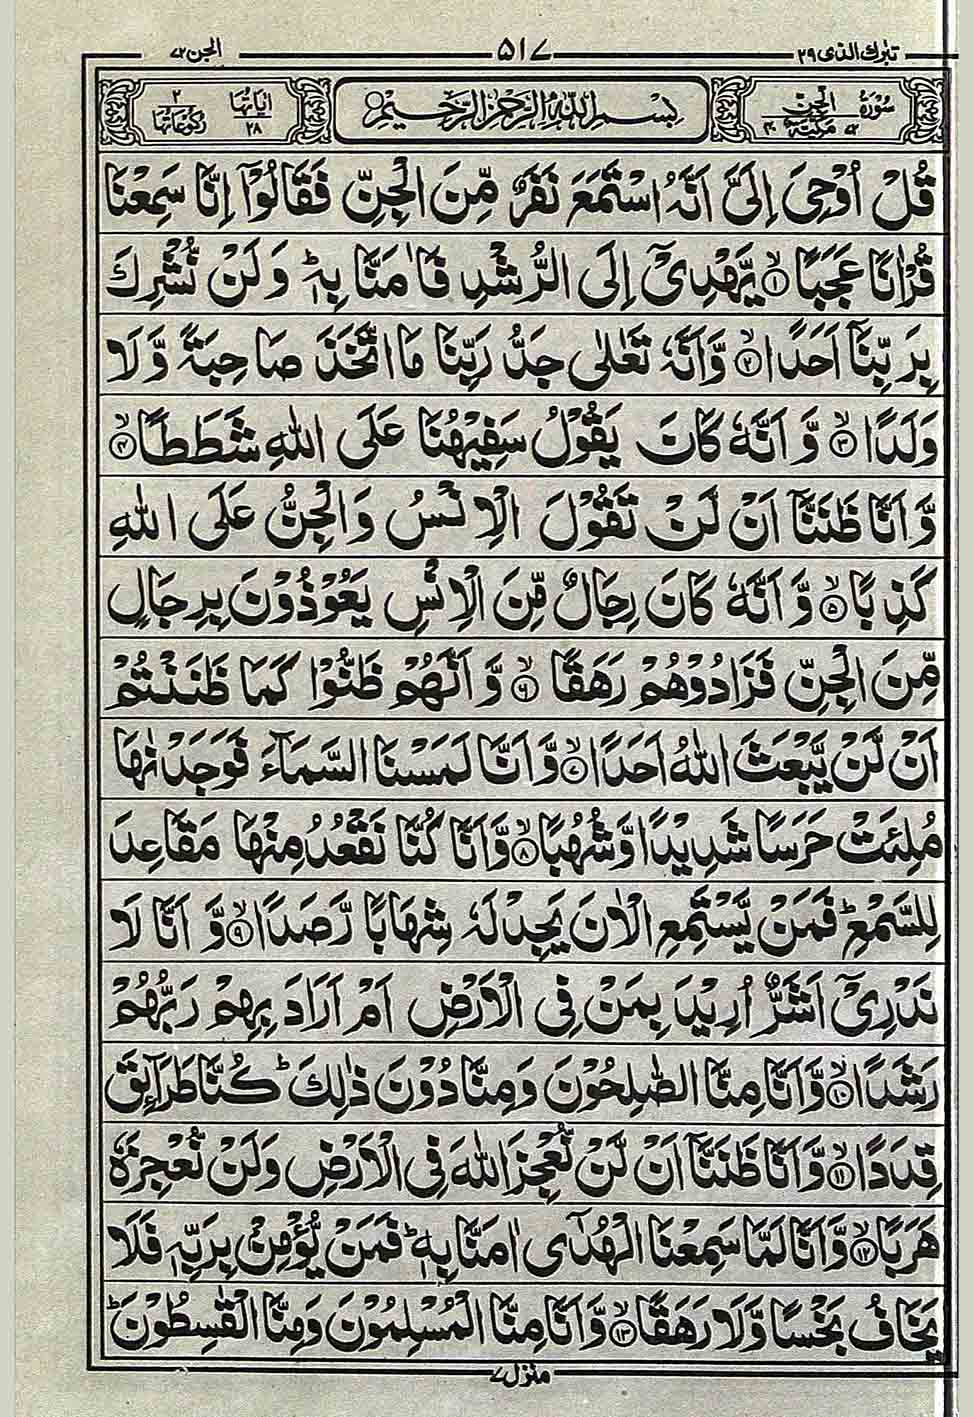 تبٰرك الذی ۲۹
۵۱۷
الجن ۷۲
سُوْرَةُ الْجِنِّ مَكِّيَّةٌ
بِسْمِ اللّٰهِ الرَّحْمٰنِ الرَّحِيْمِ
اٰيَاتُهَا ۲۸
رُكُوْعَاتُهَا ۲
قُلْ اُوْحِيَ اِلَيَّ اَنَّهُ اسْتَمَعَ نَفَرٌ مِّنَ الْجِنِّ فَقَالُوْٓا اِنَّا سَمِعْنَا
قُرْاٰنًا عَجَبًا ۙ﴿۱﴾ يَّهْدِيْٓ اِلَى الرُّشْدِ فَاٰمَنَّا بِهٖ ؕ وَلَنْ نُّشْرِكَ
بِرَبِّنَآ اَحَدًا ۙ﴿۲﴾ وَّاَنَّهٗ تَعٰلٰى جَدُّ رَبِّنَا مَا اتَّخَذَ صَاحِبَةً وَّلَا
وَلَدًا ۙ﴿۳﴾ وَّاَنَّهٗ كَانَ يَقُوْلُ سَفِيْهُنَا عَلَى اللّٰهِ شَطَطًا ۙ﴿۴﴾
وَّاَنَّا ظَنَنَّآ اَنْ لَّنْ تَقُوْلَ الْاِنْسُ وَالْجِنُّ عَلَى اللّٰهِ
كَذِبًا ۙ﴿۵﴾ وَّاَنَّهٗ كَانَ رِجَالٌ مِّنَ الْاِنْسِ يَعُوْذُوْنَ بِرِجَالٍ
مِّنَ الْجِنِّ فَزَادُوْهُمْ رَهَقًا ۙ﴿۶﴾ وَّاَنَّهُمْ ظَنُّوْا كَمَا ظَنَنْتُمْ
اَنْ لَّنْ يَّبْعَثَ اللّٰهُ اَحَدًا ۙ﴿۷﴾ وَّاَنَّا لَمَسْنَا السَّمَآءَ فَوَجَدْنٰهَا
مُلِئَتْ حَرَسًا شَدِيْدًا وَّشُهُبًا ۙ﴿۸﴾ وَّاَنَّا كُنَّا نَقْعُدُ مِنْهَا مَقَاعِدَ
لِلسَّمْعِ ؕ فَمَنْ يَّسْتَمِعِ الْاٰنَ يَجِدْ لَهٗ شِهَابًا رَّصَدًا ۙ﴿۹﴾ وَّاَنَّا لَا
نَدْرِيْٓ اَشَرٌّ اُرِيْدَ بِمَنْ فِي الْاَرْضِ اَمْ اَرَادَ بِهِمْ رَبُّهُمْ
رَشَدًا ۙ﴿۱۰﴾ وَّاَنَّا مِنَّا الصّٰلِحُوْنَ وَمِنَّا دُوْنَ ذٰلِكَ ؕ كُنَّا طَرَآئِقَ
قِدَدًا ۙ﴿۱۱﴾ وَّاَنَّا ظَنَنَّآ اَنْ لَّنْ نُّعْجِزَ اللّٰهَ فِي الْاَرْضِ وَلَنْ نُّعْجِزَهٗ
هَرَبًا ۙ﴿۱۲﴾ وَّاَنَّا لَمَّا سَمِعْنَا الْهُدٰٓى اٰمَنَّا بِهٖ ؕ فَمَنْ يُّؤْمِنْۢ بِرَبِّهٖ فَلَا
يَخَافُ بَخْسًا وَّلَا رَهَقًا ۙ﴿۱۳﴾ وَّاَنَّا مِنَّا الْمُسْلِمُوْنَ وَمِنَّا الْقٰسِطُوْنَ ؕ
منزل ۷